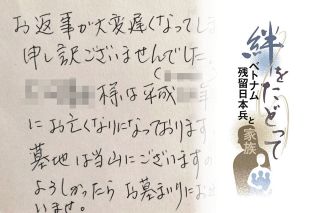 お返事が大変遅くなってしま
申し訳ございませんでした。
様は平成 年
にお亡くなりになっております
墓地は当山にございますの
よろしかったら お墓まいりにお
いませ。
絆をたどって
ベトナム
残留日本兵と
家族